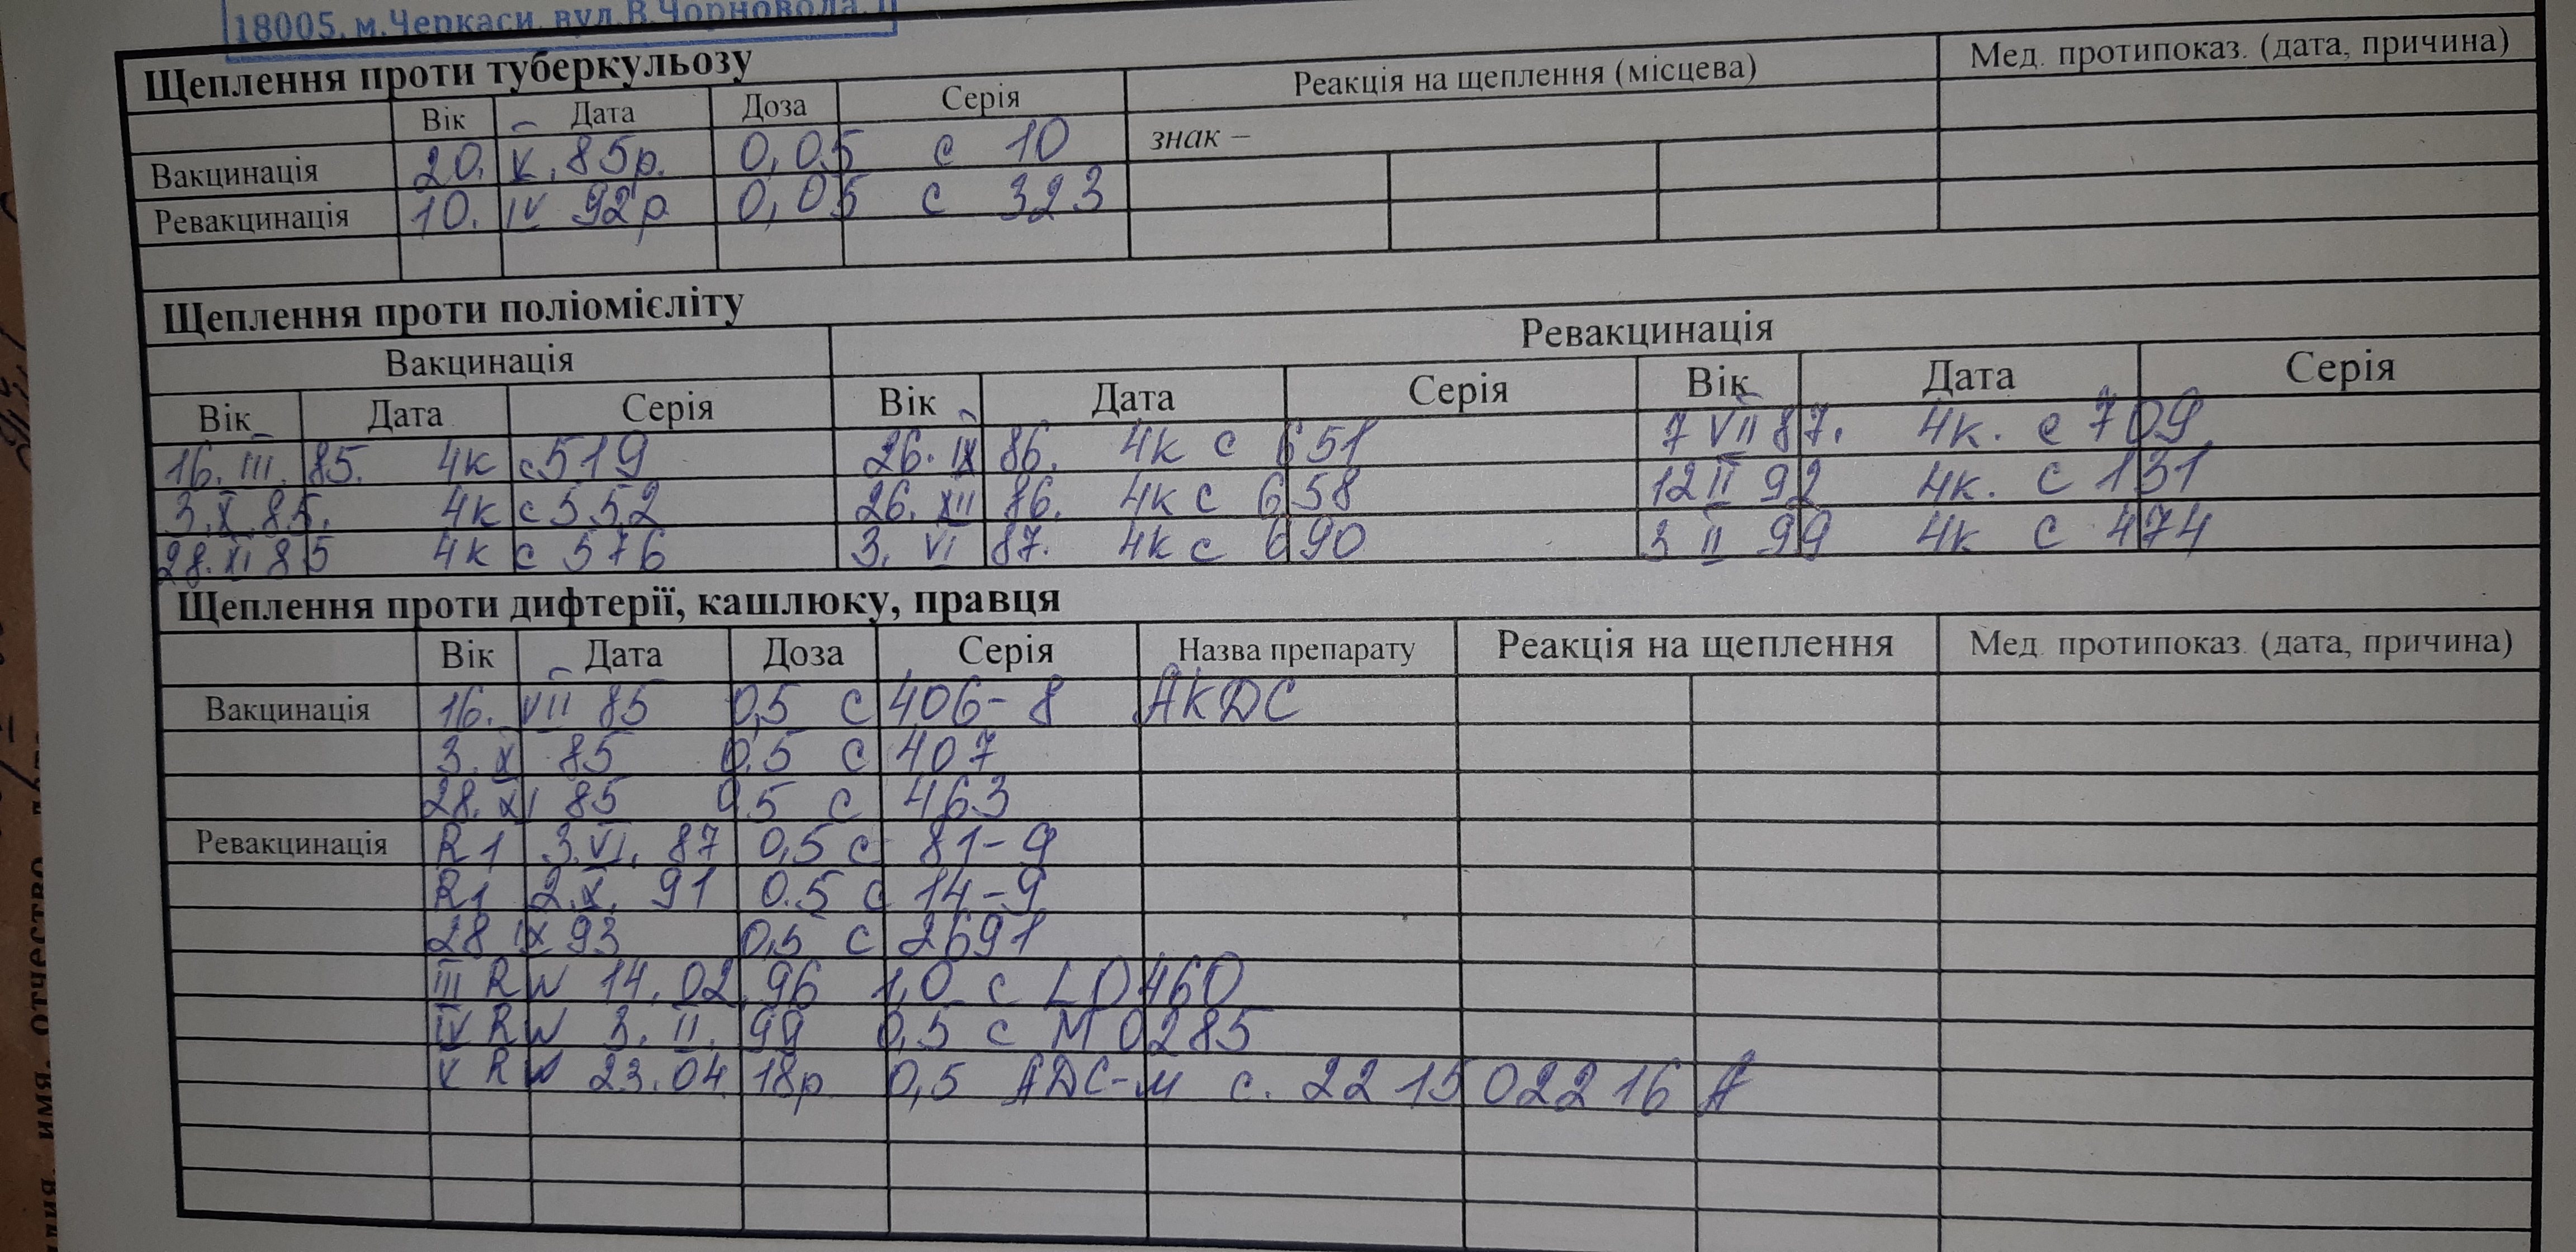 18005, м.Черкаси, вул.В.Чорновола, 1
Щеплення проти туберкульозу
Вік Дата Доза Серія Реакція на щеплення (місцева) Мед. протипоказ. (дата, причина)
знак –
Вакцинація 20. V. 85р. 0,05 с 10
Ревакцинація 10. IV 92р 0,05 с 323
Щеплення проти поліомієліту
Вакцинація Ревакцинація
Вік Дата Серія Вік Дата Серія Вік Дата Серія
16. III. 85. 4к с 519 26. IX 86. 4к с 651 7 VII 87. 4к. с 709
3. X. 85. 4к с 552 26. XII 86. 4к с 658 12 II 92 4к. с 131
28. XI 85 4к с 576 3. VI 87. 4к с 690 3 II 99 4к с 474
Щеплення проти дифтерії, кашлюку, правця
Вік Дата Доза Серія Назва препарату Реакція на щеплення Мед. протипоказ. (дата, причина)
Вакцинація 16. VII 85 0,5 с 406-8 АКДС
3. X 85 0,5 с 407
28. XI 85 0,5 с 463
Ревакцинація R1 3. VI. 87 0,5 с 81-9
R1 2. X. 91 0.5 с 14-9
28 IX 93 0,5 с 2691
III RW 14.02.96 1,0 с LD460
IV RW 3. II. 99 0,5 с М0285
V RW 23.04.18р 0,5 АДС-м с. 221502216 А
имя, отчество